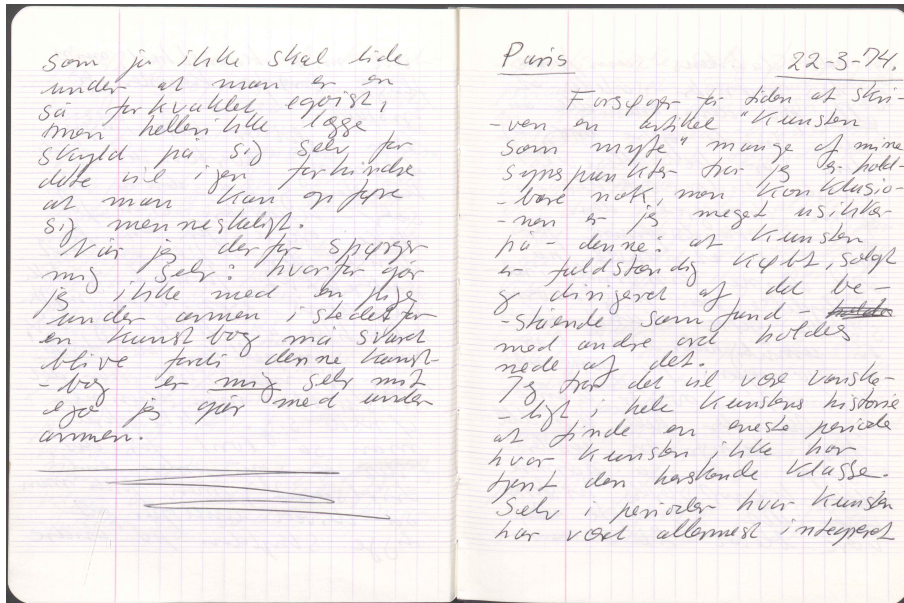 som jo ikke skal lide
under at man er en
så forkvaklet egoist,
men heller ikke lægge
skyld på sig selv for
dette vil igen forhindre
at man kan opføre
sig menneskeligt.
Når jeg derfor spørger
mig selv: hvorfor går
jeg ikke med en pige
under armen i stedet for
en kunstbog må svaret
blive fordi denne kunst-
-bog er mig selv mit
ego jeg går med under
armen.
Paris 22-3-74.
Forsøger for tiden at skri-
-ven en artikel "Kunsten
som myte" mange af mine
synspunkter tror jeg er hold-
-bare nok, men konklusio-
-nen er jeg meget usikker
på - denne: at Kunsten
er fuldstændig købt, solgt
og dirigeret af det be-
-stående samfund -
med andre ord holdes
nede af det.
Jeg tror det vil være vanske-
-ligt i hele Kunstens historie
at finde en eneste periode
hvor Kunsten ikke har
tjent den herskende Klasse.
Selv i perioder hvor Kunsten
har været allermest integreret